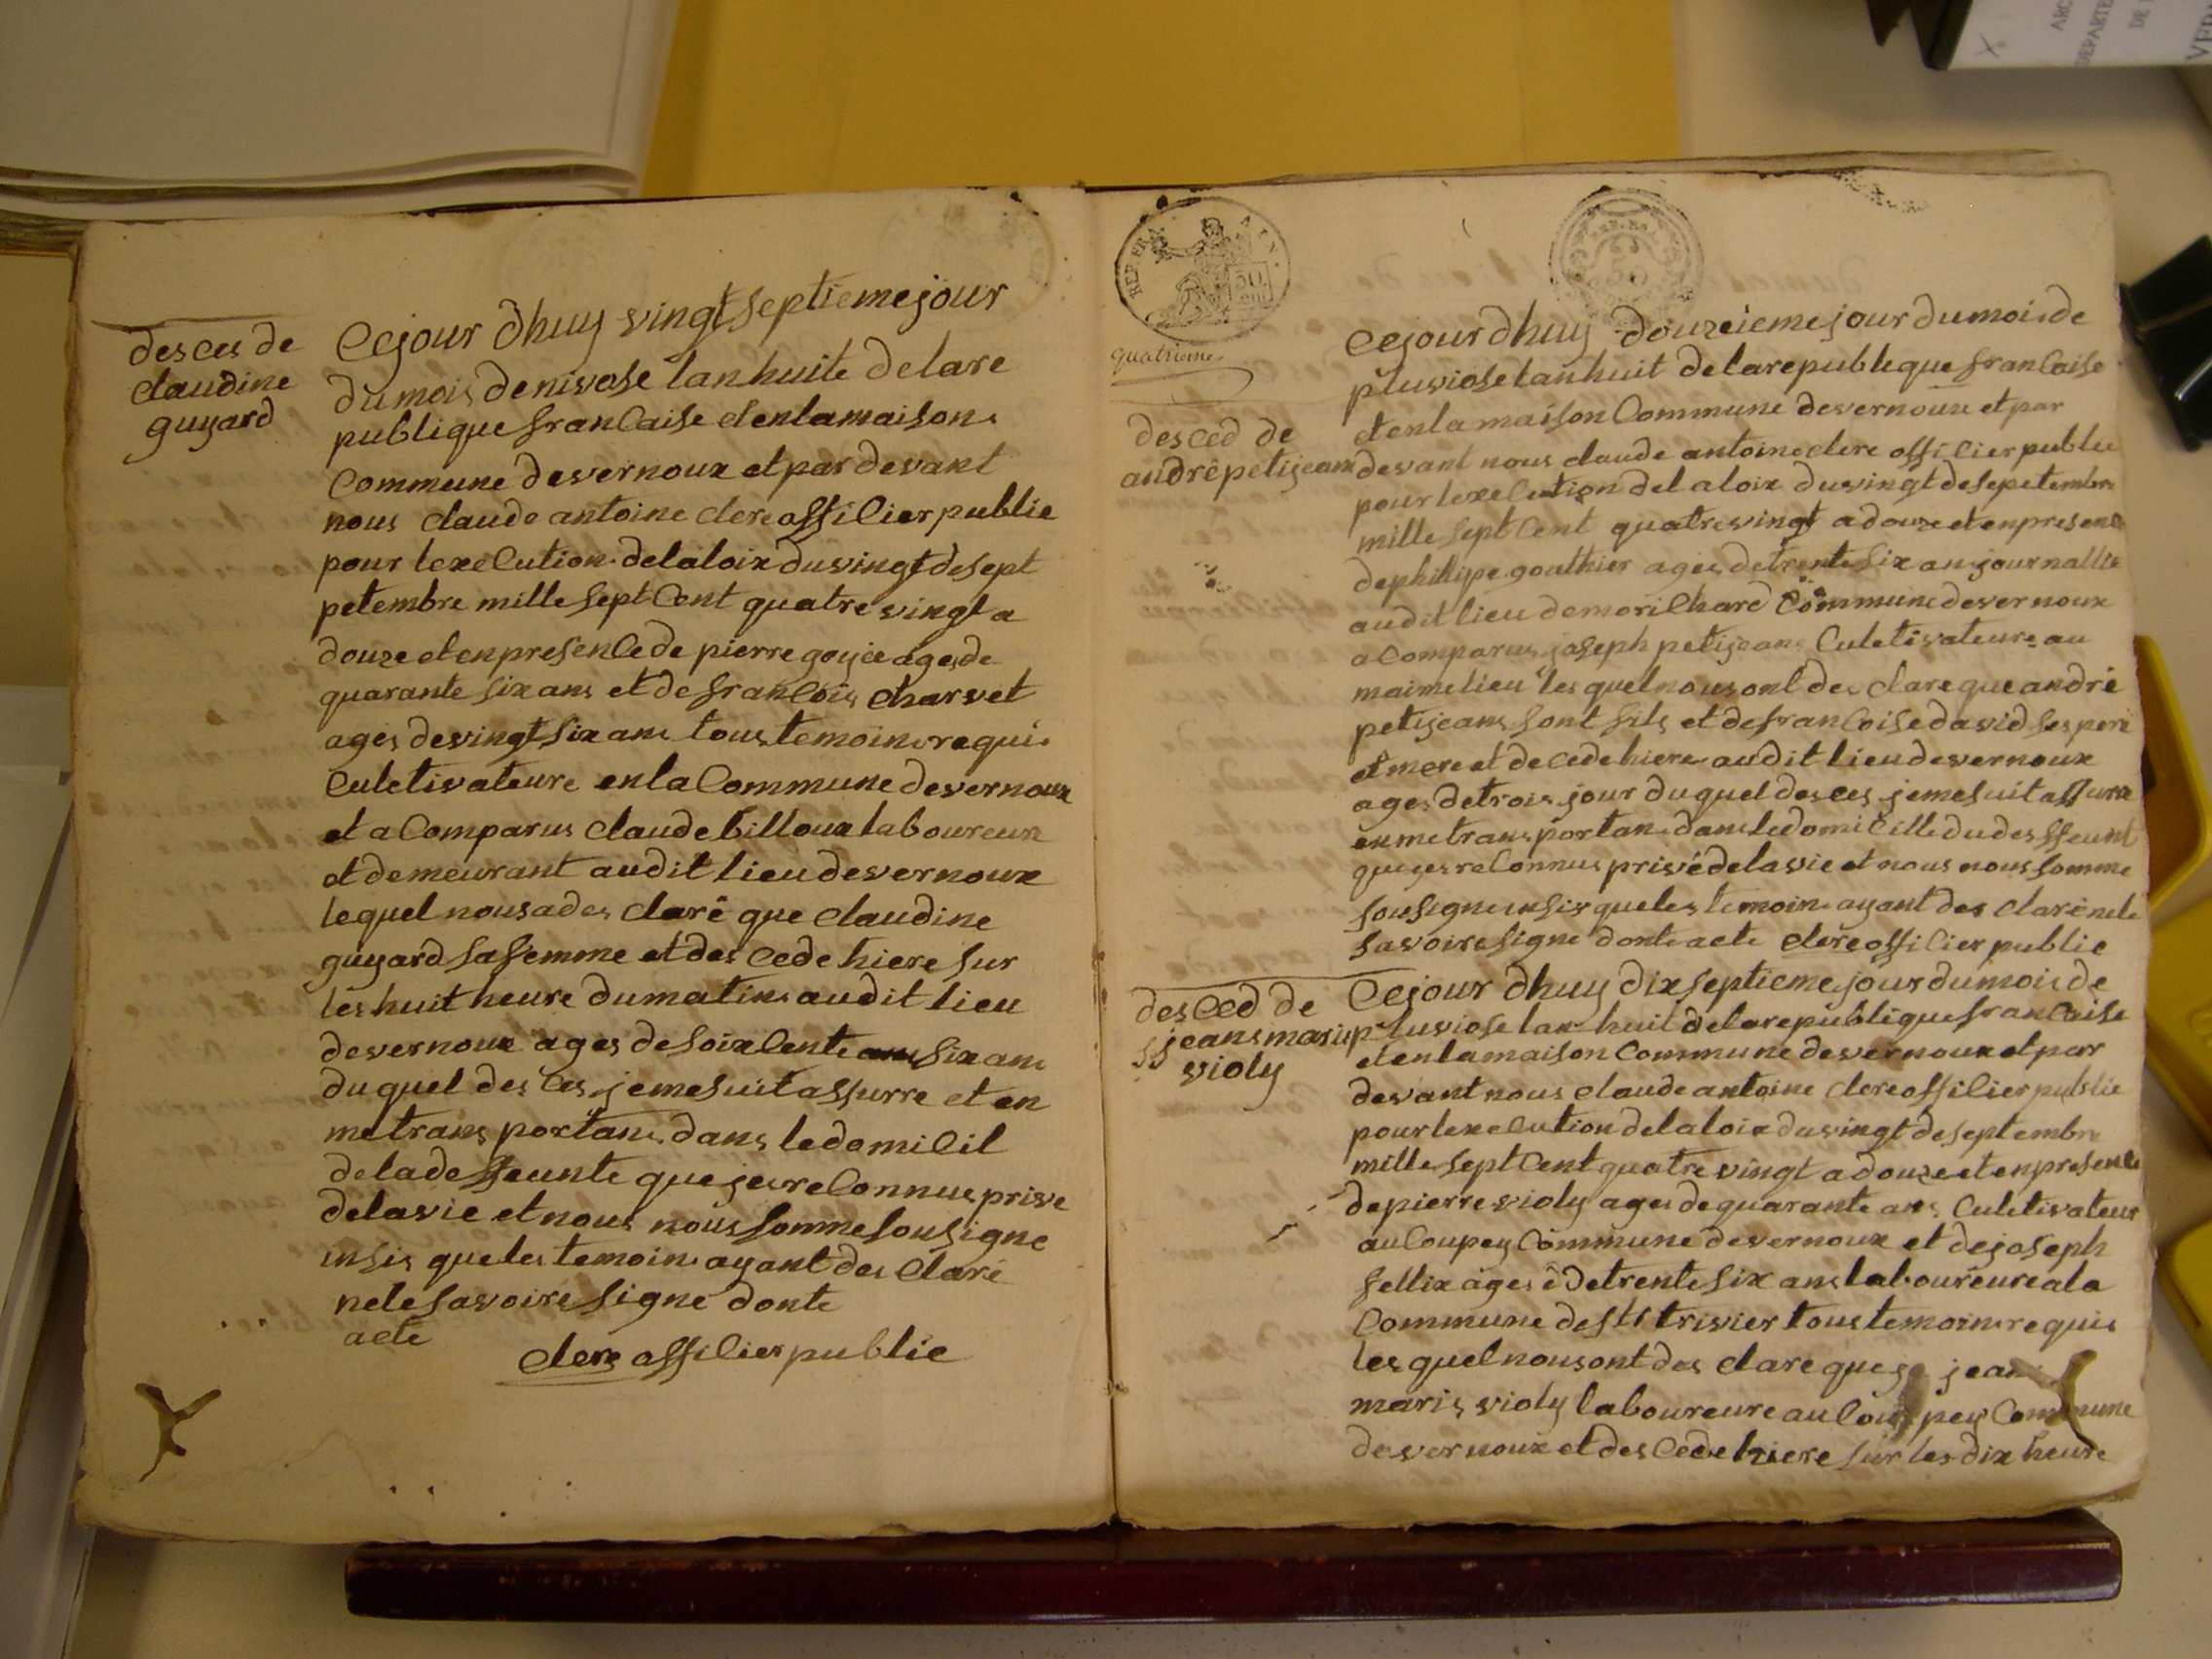 desces de
claudine
guyard
Cejour dhuy vingt septieme jour
du mois de nivose lan huite de la re
publique francaise et en la maison
Commune de vernoux et par devant
nous claude antoine clere offilier publie
pour lexelution de la loix du vingt de sept
petembre mille sept Cent quatre vingt a
douze et en presenCe de pierre goyée ages de
quarante six ans et de franCois charvet
ages de vingt six ans tous temoins requis
Culetivateure en la Commune de vernoux
et a Comparus claude billoux laboureur
et demeurant audit lieu de vernoux
lequel nous a des claré que claudine
guyard sa femme et des Cede hiere sur
les huit heure du matin audit lieu
de vernoux ages de soixCente six ans
du quel des Ces je me suit assurre et en
me trans portans dans le domiCil
de la desfeunte que jes reConnue prive
de la vie et nous nous somme sousigne
insis que les temoins ayant des Claré
ne le savoire signe donte
acte
clere offilier publie
REP. FRA
quatrieme
desced de
andré petijean
Cejour dhuy douzeieme jour du mois de
pluviose lan huit de la republeque franCaise
et en la maison Commune de vernoux et par
devant nous claude antoine clere offiCier publie
pour lexeCution de la loix du vingt de sepetembre
mille sept Cent quatre vingt a douze et en presenCe
de philipe gouthier ages de trente six ans journallie
audit lieu de morilhard Commune de vernoux
a Comparus joseph petijeans Culetivateure au
maime lieu les quel nous ont des clare que andré
petijeans sont fils et de franCoise david ses pere
et mere et de Cede hiere audit lieu de vernoux
ages de trois jour du quel des ces je me suit assurre
en me trans portans dans le domiCille du desffeunt
que jes reConnus privé de la vie et nous nous somme
sousigne insis que les temoins ayant des claré ne le
savoire signe donte acte clere offiCier publie
desced de
jeans marie
violy
Cejour dhuy dix septieme jour du mois de
pluviose lan huit de la republique franCaise
et en la maison Commune de vernoux et par
devant nous claude antoine clere offiCier publie
pour lexeCution de la loix du vingt de septembre
mille sept Cent quatre vingt a douze et en presenCe
de pierre violy ages de quarante ans Culetivateur
au Coupey Commune de vernoux et de joseph
fellix ages é de trente six ans laboureure a la
Commune de st trivier tous temoins requis
les quel nous ont des clare que jean
maris violy laboureure au Coupey Commune
de vernoux et des Cede hiere sur les dix heure